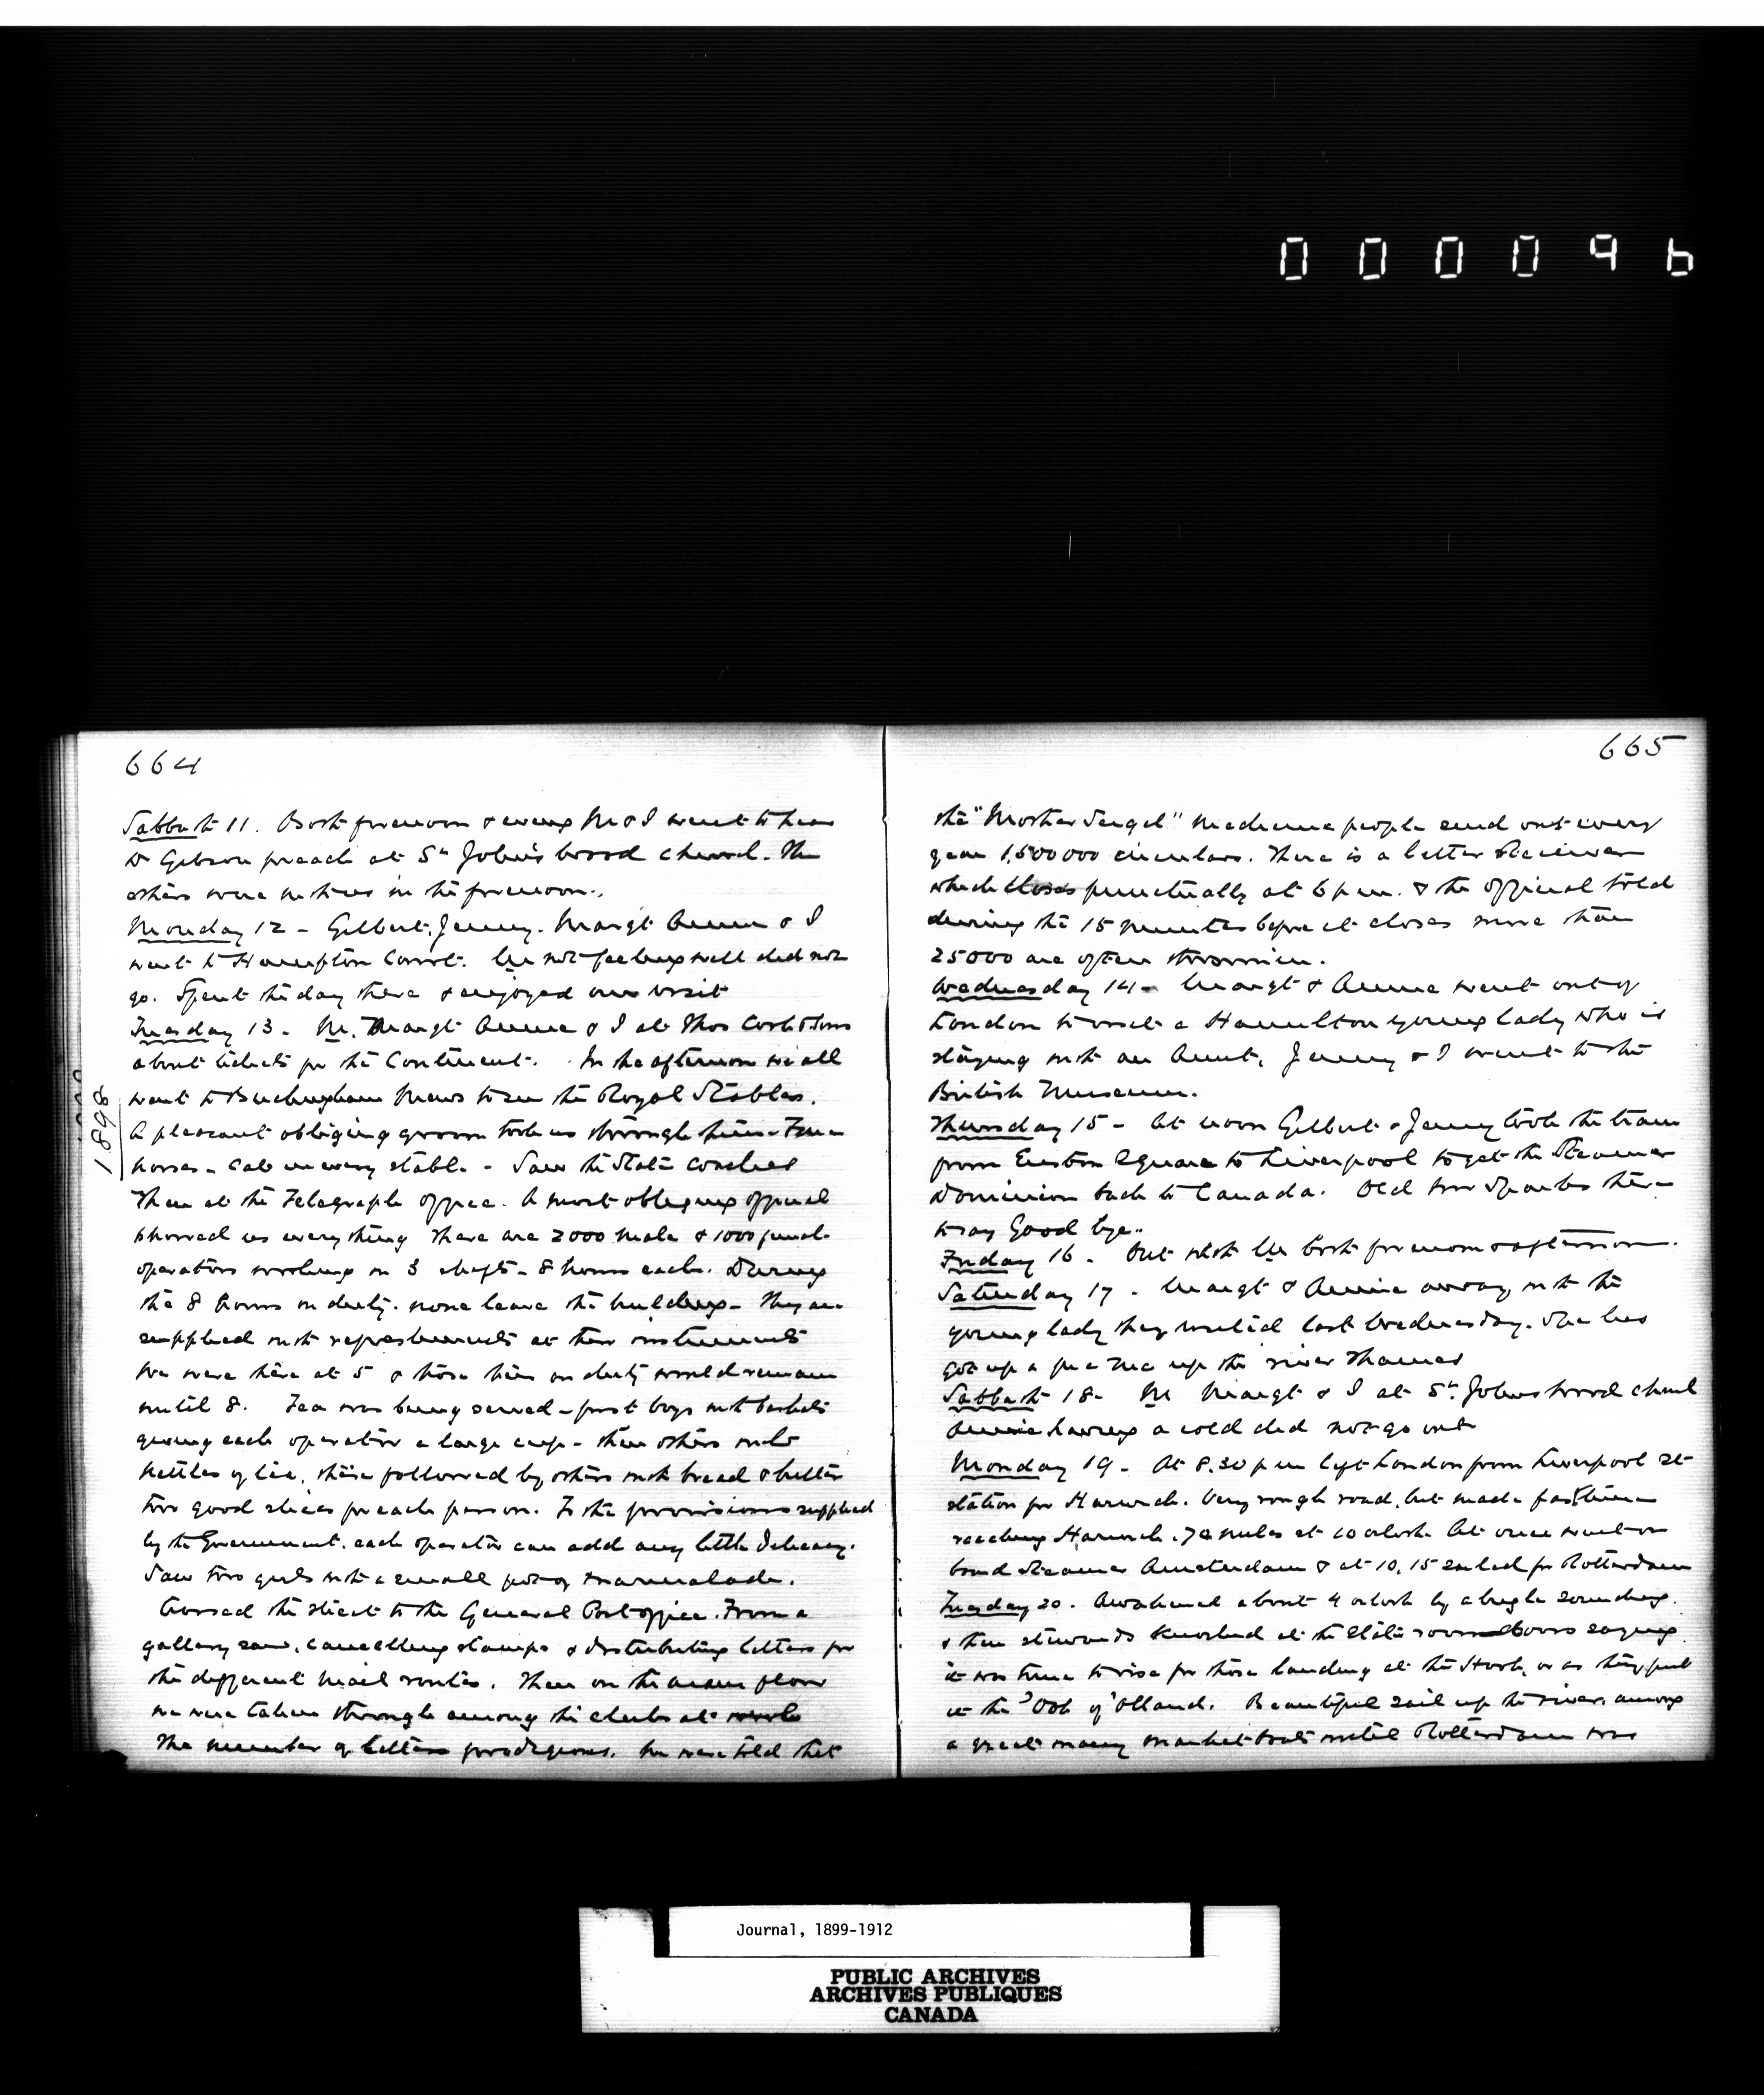 000096
664
Sabbath 11. Both forenoon & eveng M & I went to hear
Dr Gibson preach at St John's wood church. The
others were with us in the forenoon.
Monday 12 - Gilbert, Jenny. Margt Annie & I
went to Hampton Court. M not feeling well did not
go. Spent the day there & enjoyed our visit
Tuesday 13 - M. Margt Annie & I at Thos Cook & Sons
about tickets for the Continent. In the afternoon we all
went to Buckingham Mews to see the Royal Stables.
A pleasant obliging groom took us through them - Fine
horses - Cats in every stable - Saw the State coaches
Then at the Telegraph office. A most obliging official
showed us everything There are 2000 male & 1000 female
operators working in 3 shifts - 8 hours each. During
the 8 hours on duty. none leave the building - They are
supplied with refreshments at their instruments
We were there at 5 & those then on duty would remain
until 8. Tea was being served - first boys with baskets
giving each operator a large cup - then others with
kettles of tea, these followed by others with bread & butter
two good slices for each person. To the provisions supplied
by the Government. each operator can add any little delicacy.
Saw two girls with a small pot of marmalade.
Crossed the street to the General Post office. From a
gallery saw, cancelling stamps & distributing letters for
the different mail routes. Then on the main floor
we were taken through among the clerks at work
The number of letters prodigious. We were told that
1898
665
the "Mother Seigel" Medicine people send out every
year 1,500000 circulars. There is a letter Receiver
which closes punctually at 6 p m. & the official told
during the 15 minutes before it closes more than
25000 are often thrown in.
Wednesday 14 - Margt & Annie went out of
London to visit a Hamilton young lady who is
staying with an Aunt, Jenny & I went to the
British Museum.
Thursday 15 - At noon Gilbert & Jenny took the train
from Euston Square to Liverpool to get the Steamer
Dominion back to Canada. Old there
to say Good bye.
Friday 16 - Out with M both forenoon & afternoon.
Saturday 17 - Margt & Annie away with the
young lady they visited last Wednesday. She has
got up a pic nic up the river Thames
Sabbath 18 - M Margt & I at St. Johns wood church
Annie having a cold did not go out
Monday 19 - At 8.30 p m left London from Liverpool St
station for Harwich. Very rough road, but made fast time
reaching Harwich. 70 miles at 10 oclock. At once went on
board Steamer Amsterdam & at 10.15 sailed for Rotterdam
Tuesday 20. Awakened about 4 oclock by a bugle sounding.
& then stewards knocked at the state room doors saying
it was time to rise for those landing at the Hook, or as they put
it the 'Ook of 'Olland. Beautiful sail up the river among
a great many market boats until Rotterdam was
Journal, 1899-1912
PUBLIC ARCHIVES
ARCHIVES PUBLIQUES
CANADA